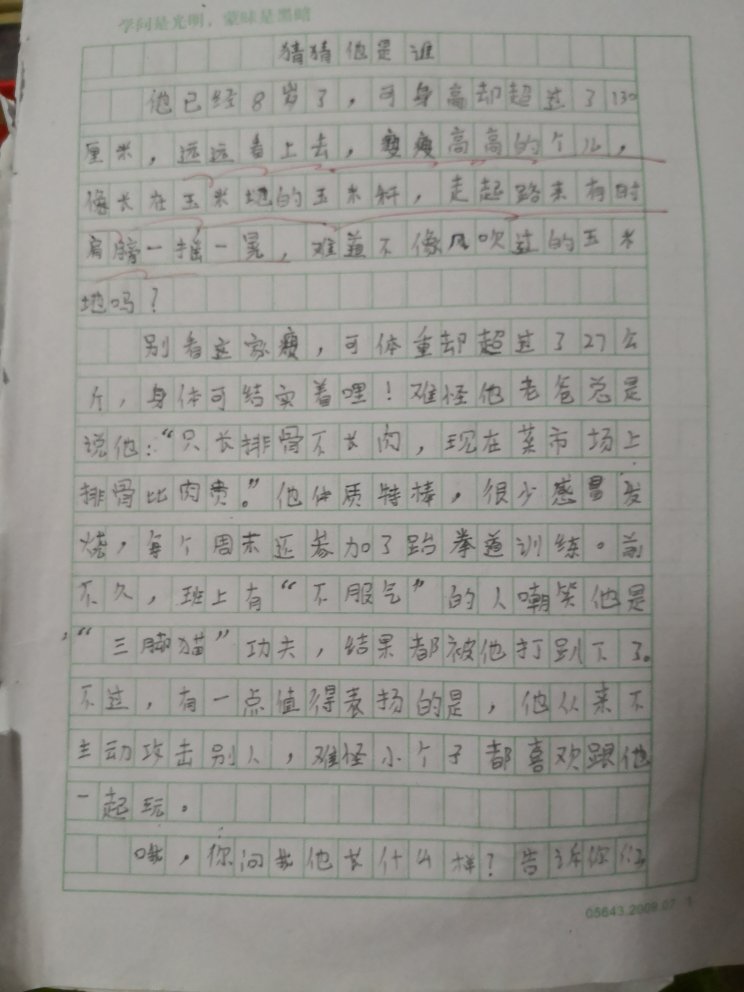 学问是光明，蒙昧是黑暗
猜猜他是谁
他已经8岁了，可身高却超过了130
厘米，远远看上去，瘦瘦高高的个儿，
像长在玉米地的玉米秆，走起路来有时
肩膀一摇一晃，难道不像风吹过的玉米
地吗？
别看这家瘦，可体重却超过了27公
斤，身体可结实着哩！难怪他老爸总是
说他：“只长排骨不长肉，现在菜市场上
排骨比肉贵。”他体质特棒，很少感冒发
烧，每个周末还参加了跆拳道训练。前
不久，班上有“不服气”的人嘲笑他是
“三脚猫”功夫，结果都被他打趴下了。
不过，有一点值得表扬的是，他从来不
主动攻击别人，难怪小个子都喜欢跟他
一起玩。
哦，你问我他长什么样？告诉你们
05643.2009.07